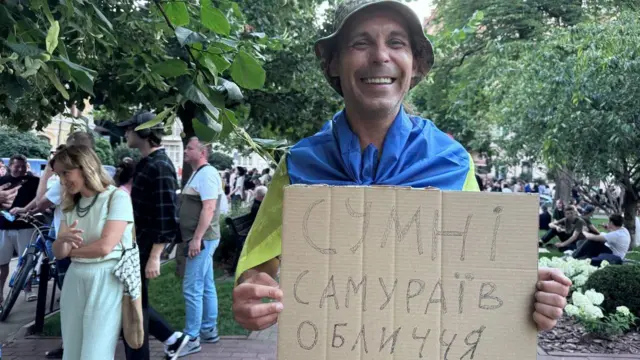 СУМНІ
САМУРАЇВ
ОБЛИЧЧЯ